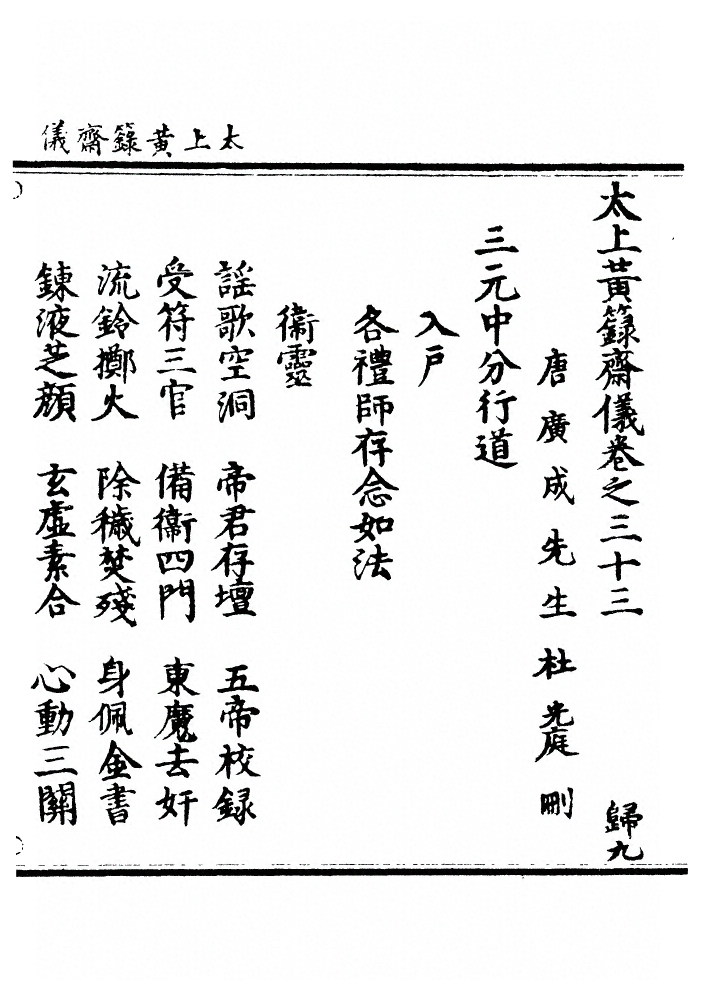 太上黃籙齋儀
太上黃籙齋儀卷之三十三 歸九
唐廣成先生杜光庭刪
三元中分行道
入戶
各禮師存念如法
衛靈
謠歌空洞 帝君存壇 五帝校録
受符三官 備衛四門 東魔去奸
流鈴擲火 除穢焚殘 身佩金書
鍊液芝顏 玄虛素合 心動三關